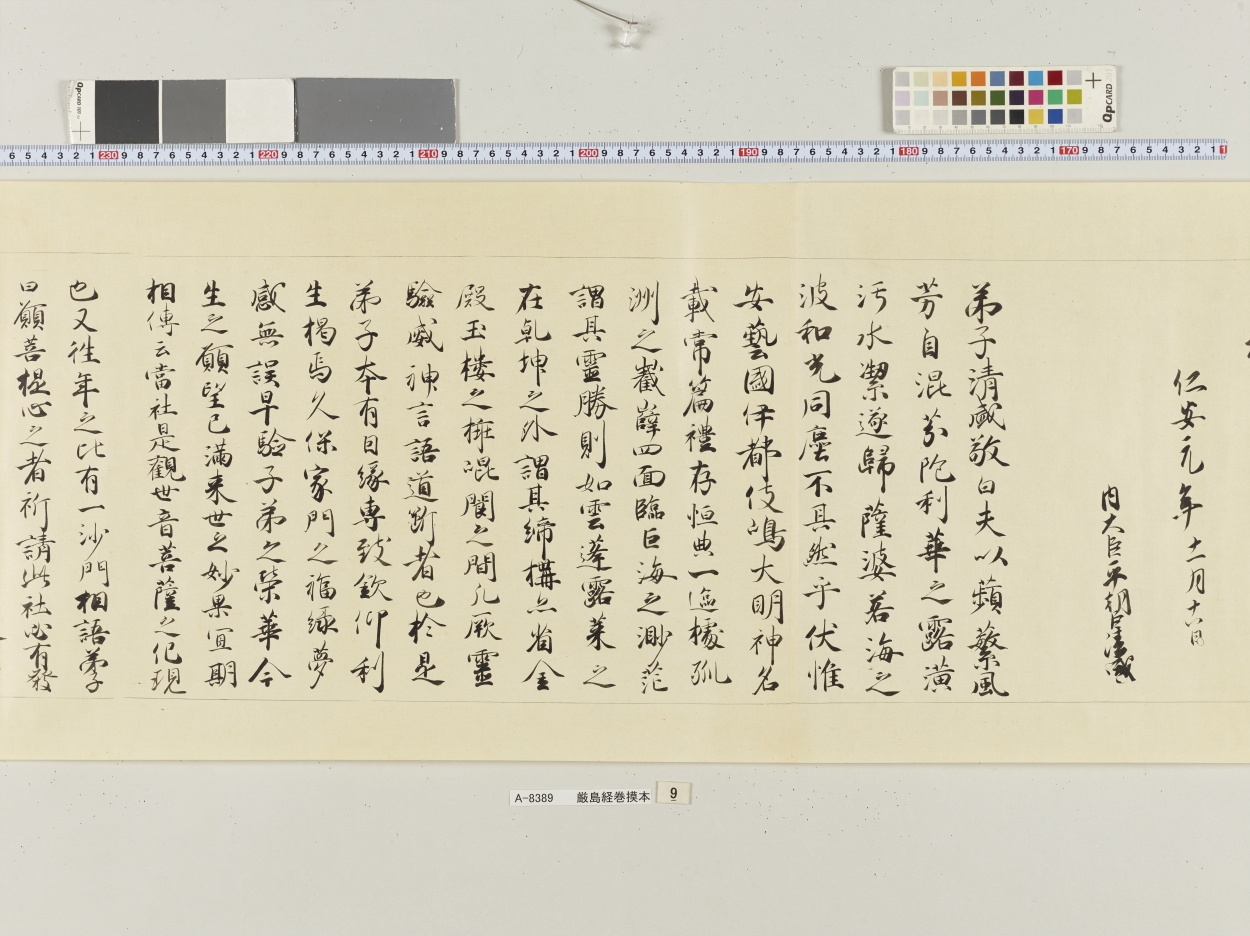 仁安元年十一月十八日
内大臣平朝臣清盛
弟子清盛敬白夫以蘋蘩風
芳自混芬陀利華之露潢
汙水潔遂歸薩婆若海之
波和光同塵不其然乎伏惟
安藝國伊都伎嶋大明神名
載常篇禮存恒典一區據孤
洲之巀嶭四面臨巨海之渺茫
謂其靈勝則如雲蓬露萊之
在乹坤之外謂其締構亦省金
殿玉樓之排崐閬之間凡厥靈
驗威神言語道断者也於是
弟子本有因縁専致欽仰利
生掲焉久保家門之福縁夢
感無誤早驗子弟之榮華今
生之願望已満来世之妙果宜期
相傳云當社是觀世音菩薩之化現
也又徃年之比有一沙門相語弟子
曰願菩提心之者祈請此社必有發
A-8389 厳島経巻摸本 9
QpCARD
230 220 210 200 190 180 170